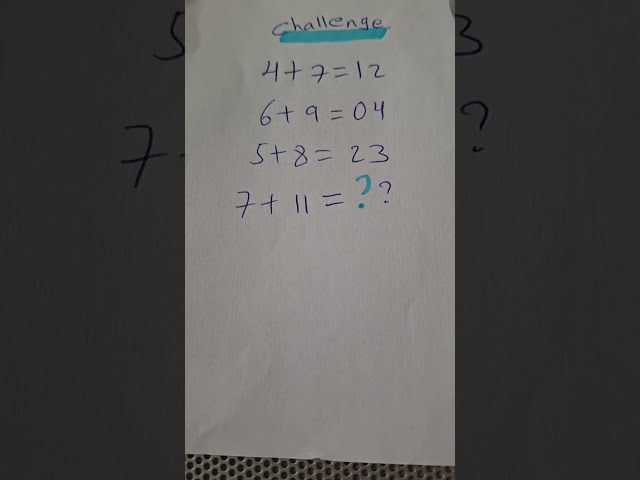 challenge.
4+7=12
6+9=04
5+8=23
7+11=??